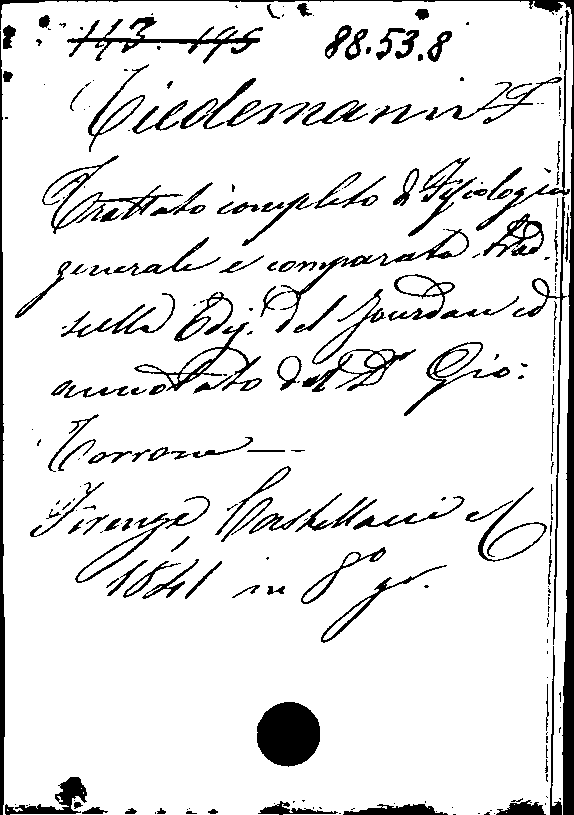 143. 195 88.53.8
Tiedemann F
Trattato completo di Fisiologia
generale e comparata trad.
sulla Ediz. del Jourdan ed
annotato dal Dr Gio:
Torrone —
Firenze, Castellacci e C
1841 in 8º gr.